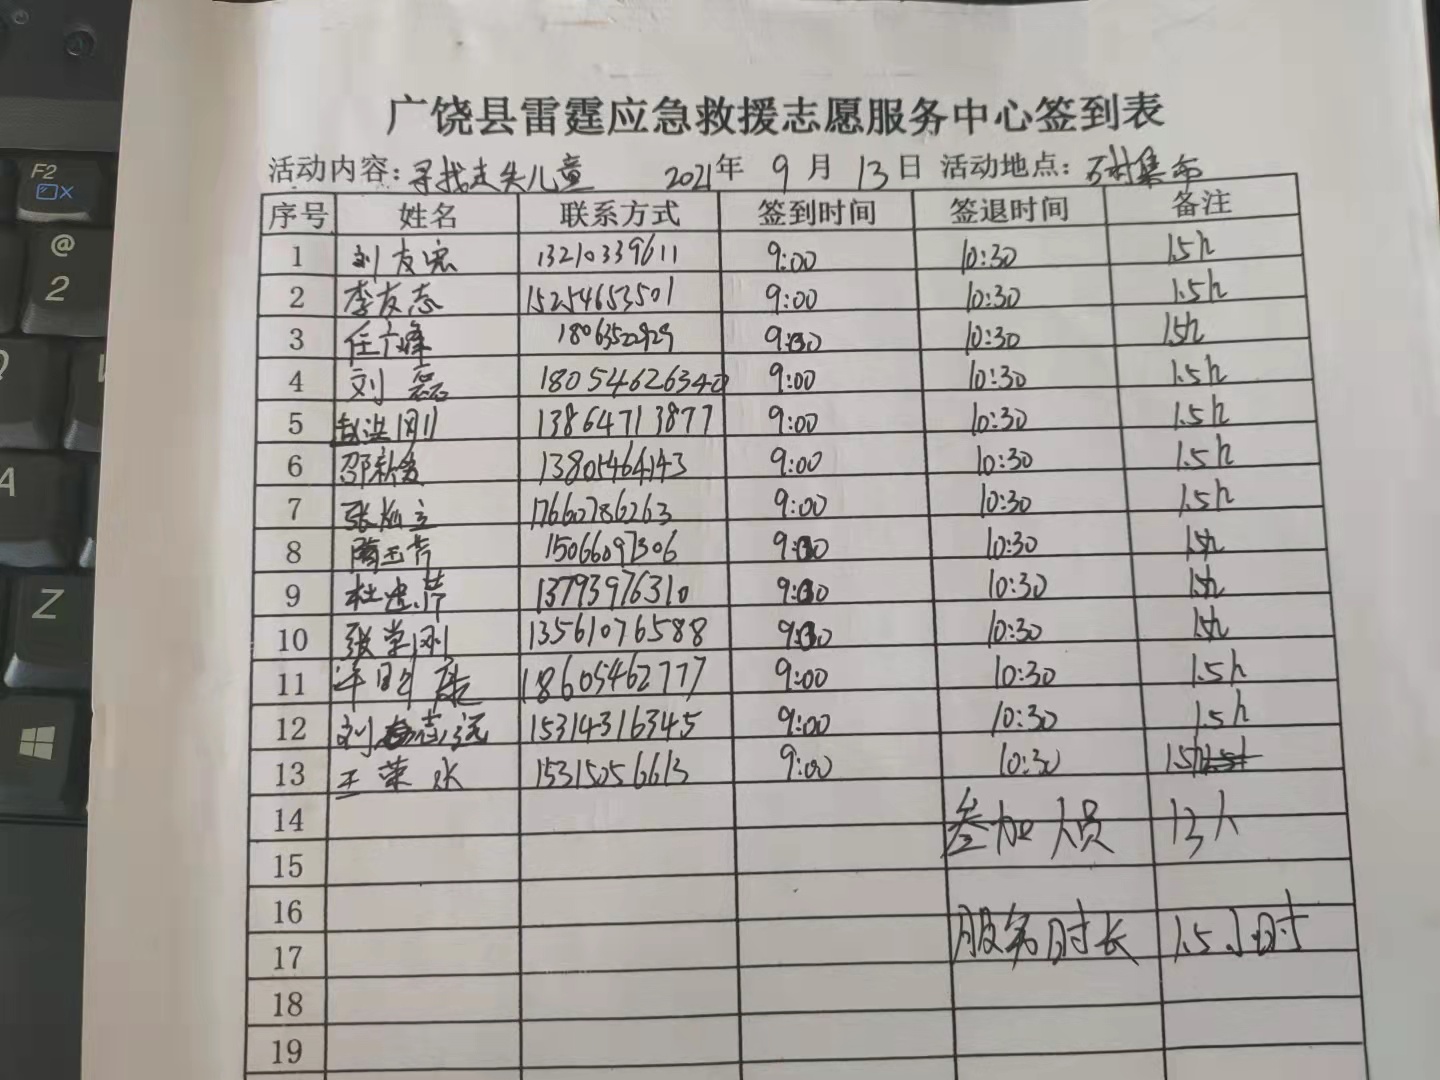 广饶县雷霆应急救援志愿服务中心签到表
活动内容:寻找走失儿童 2021年 9月 13日 活动地点:石村集市
序号 姓名 联系方式 签到时间 签退时间 备注
1 刘友忠 13210339611 9:00 10:30 1.5h
2 李友志 15254653501 9:00 10:30 1.5h
3 任广峰 18063522929 10:30 1.5h
4 刘磊 18054626340 9:00 10:30 1.5h
5 赵洪刚 13864713877 9:00 10:30 1.5h
6 邵新 13805464143 9:00 10:30 1.5h
7 张 立 17660786263 9:00 10:30 1.5h
8 15066097306 10:30 1.5h
9 杜忠 13793976310 10:30 1.5h
10 张荣刚 13561076588 10:30 1.5h
11 康 18605462777 9:00 10:30 1.5h
12 刘志远 15314316345 9:00 10:30 1.5h
13 王荣 15315056613 9:00 10:30 1.5h
14 参加人员 13人
15
16
17 服务时长 1.5小时
18
19
F2
@
2
A
Z